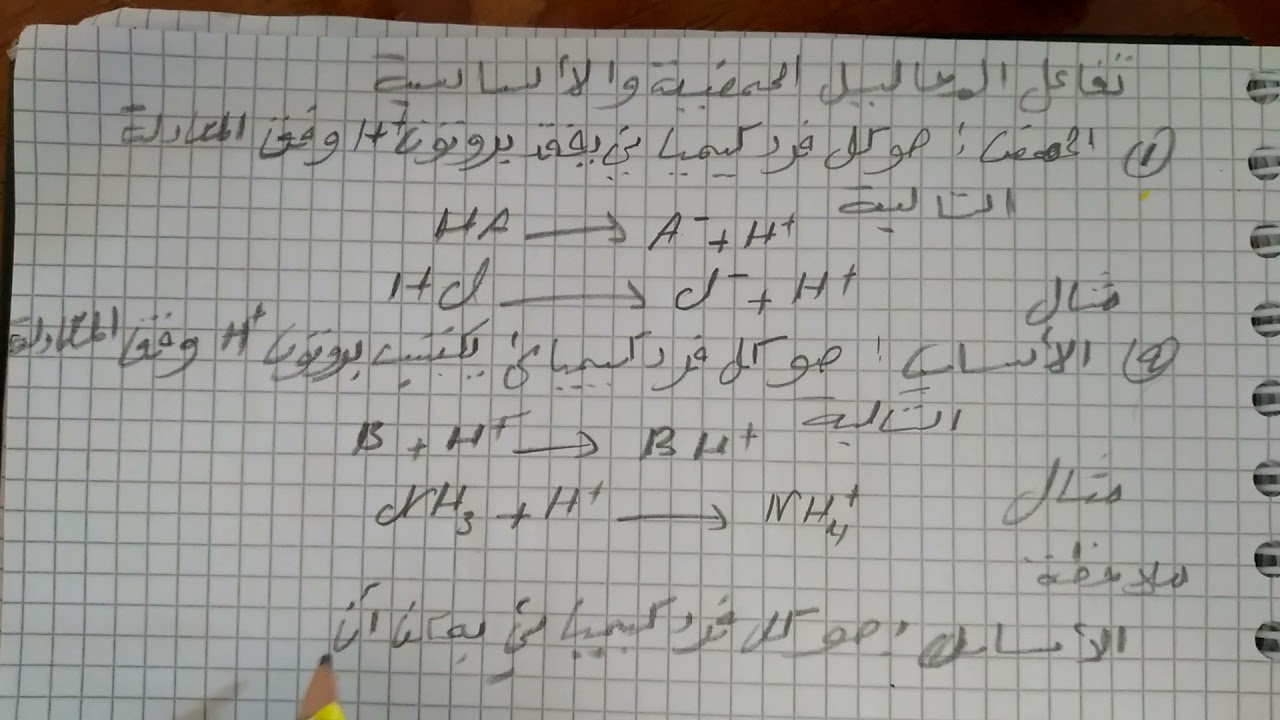 تفاعل المحاليل الحمضية والأساسية
① الحمض: هو كل فرد كيميائي يفقد بروتون H⁺ وفق المعادلة
التالية
HA → A⁻ + H⁺
مثال HCl → Cl⁻ + H⁺
② الأساس: هو كل فرد كيميائي يكتسب بروتون H⁺ وفق المعادلة
التالية
B + H⁺ → BH⁺
مثال NH₃ + H⁺ → NH₄⁺
ملاحظة
الأساس: هو كل فرد كيميائي يمكن أن